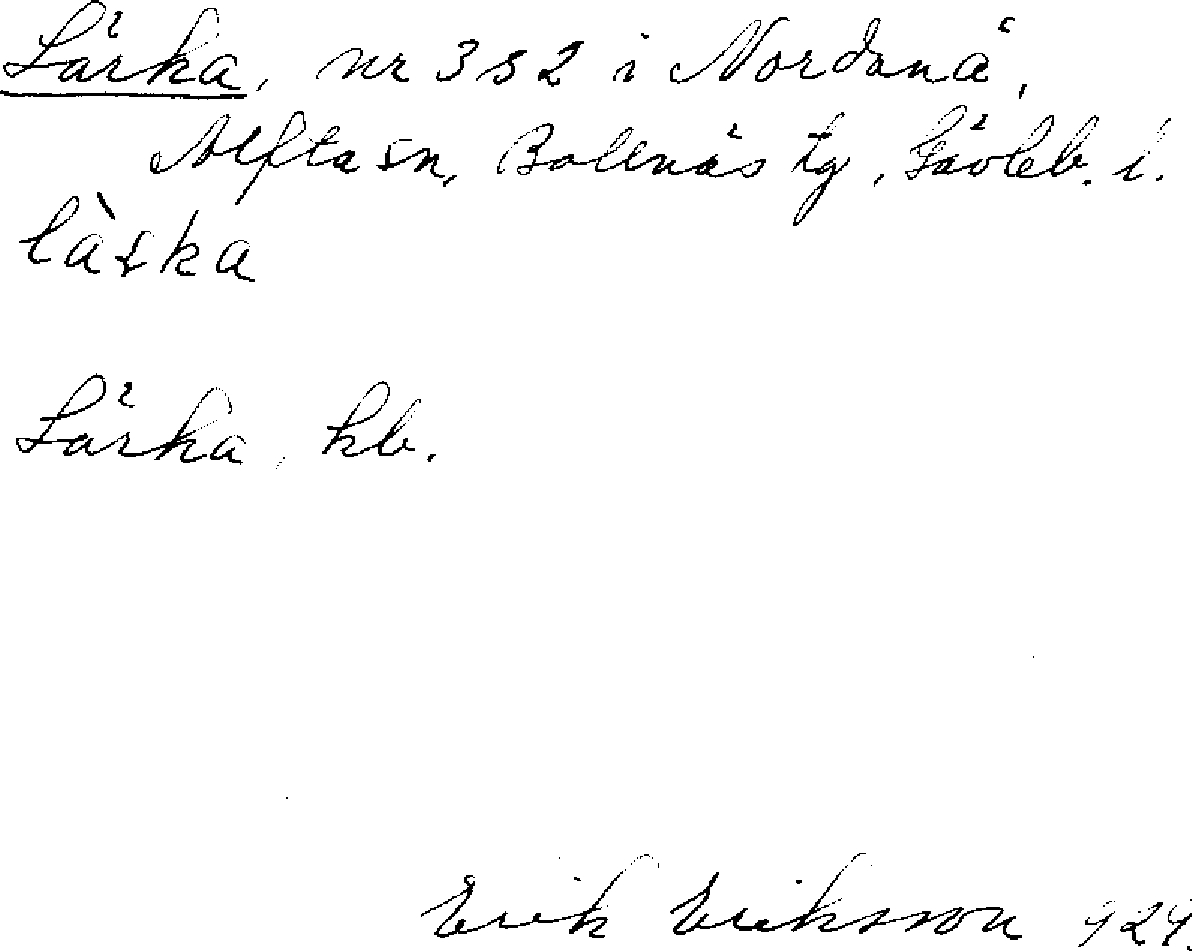 Lärka, nr 3 s 2 i Nordanå,
Alfta sn, Bollnäs tg, Gävleb. l.
Lärka, kb.
Erik Eriksson 1929.